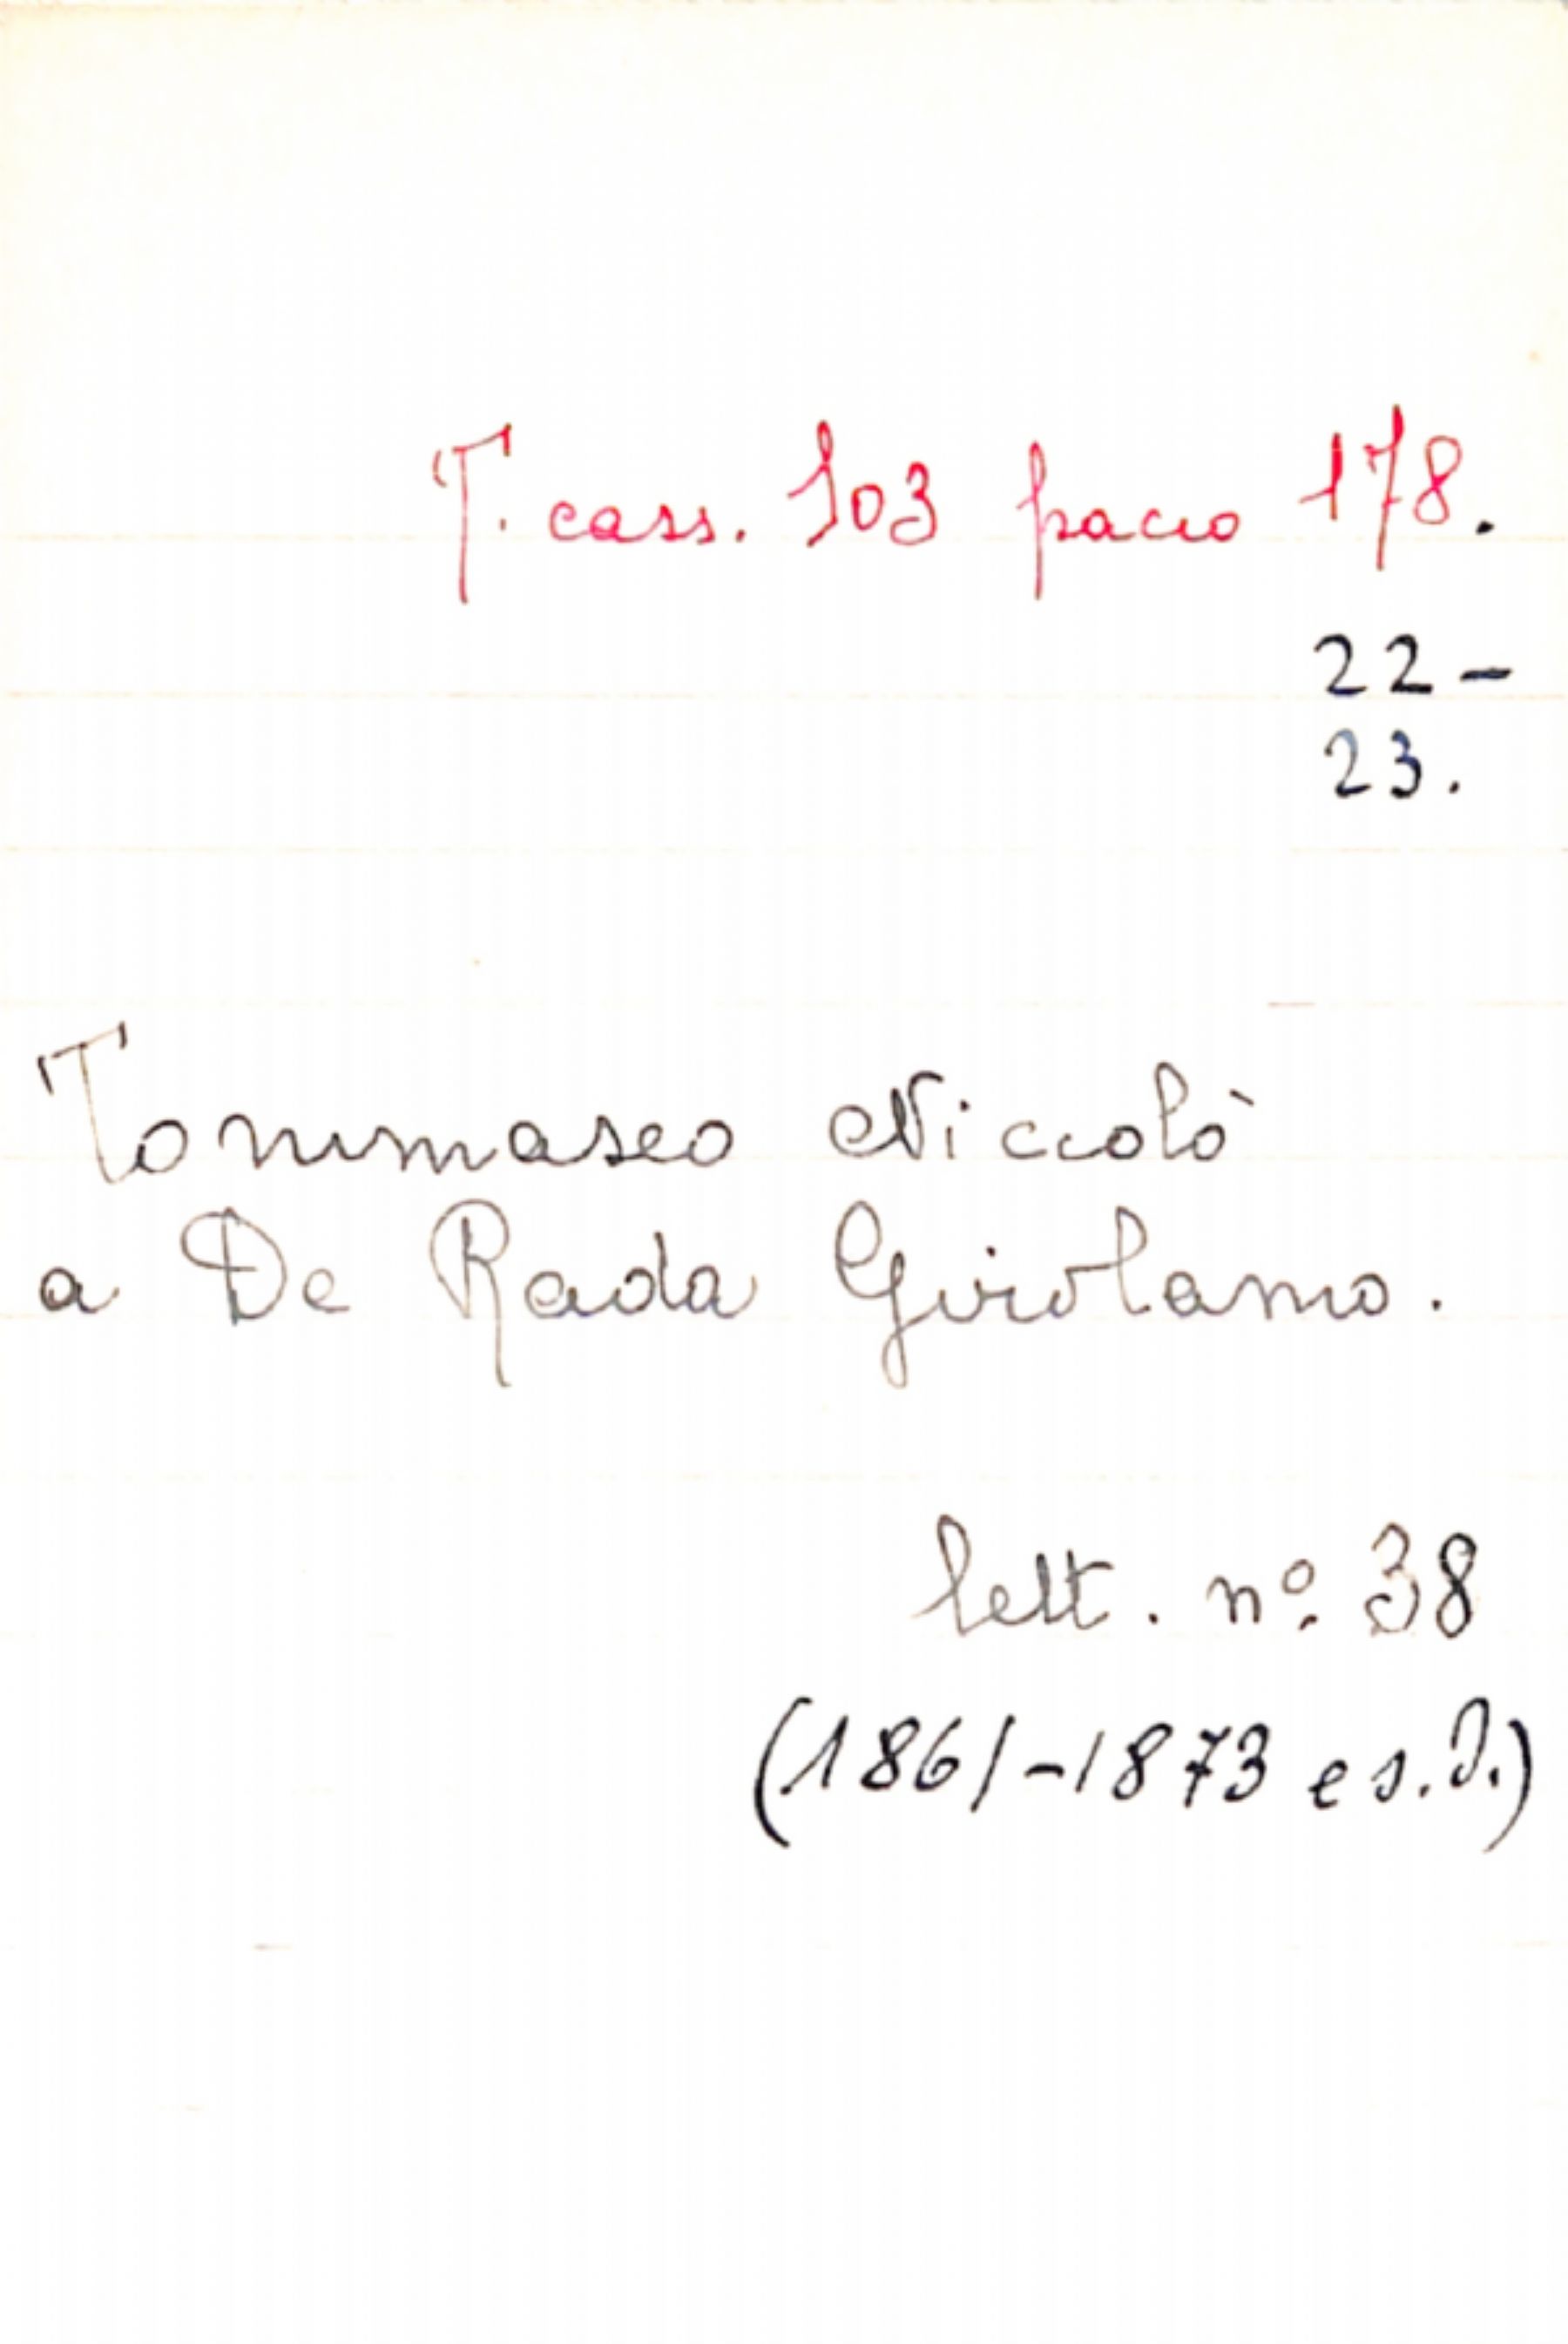 T. cass. 103 pacco 178.
22-
23.
Tommaseo Niccolò
a De Rada Girolamo.
lett. nº. 38
(1861-1873 e s.d.)